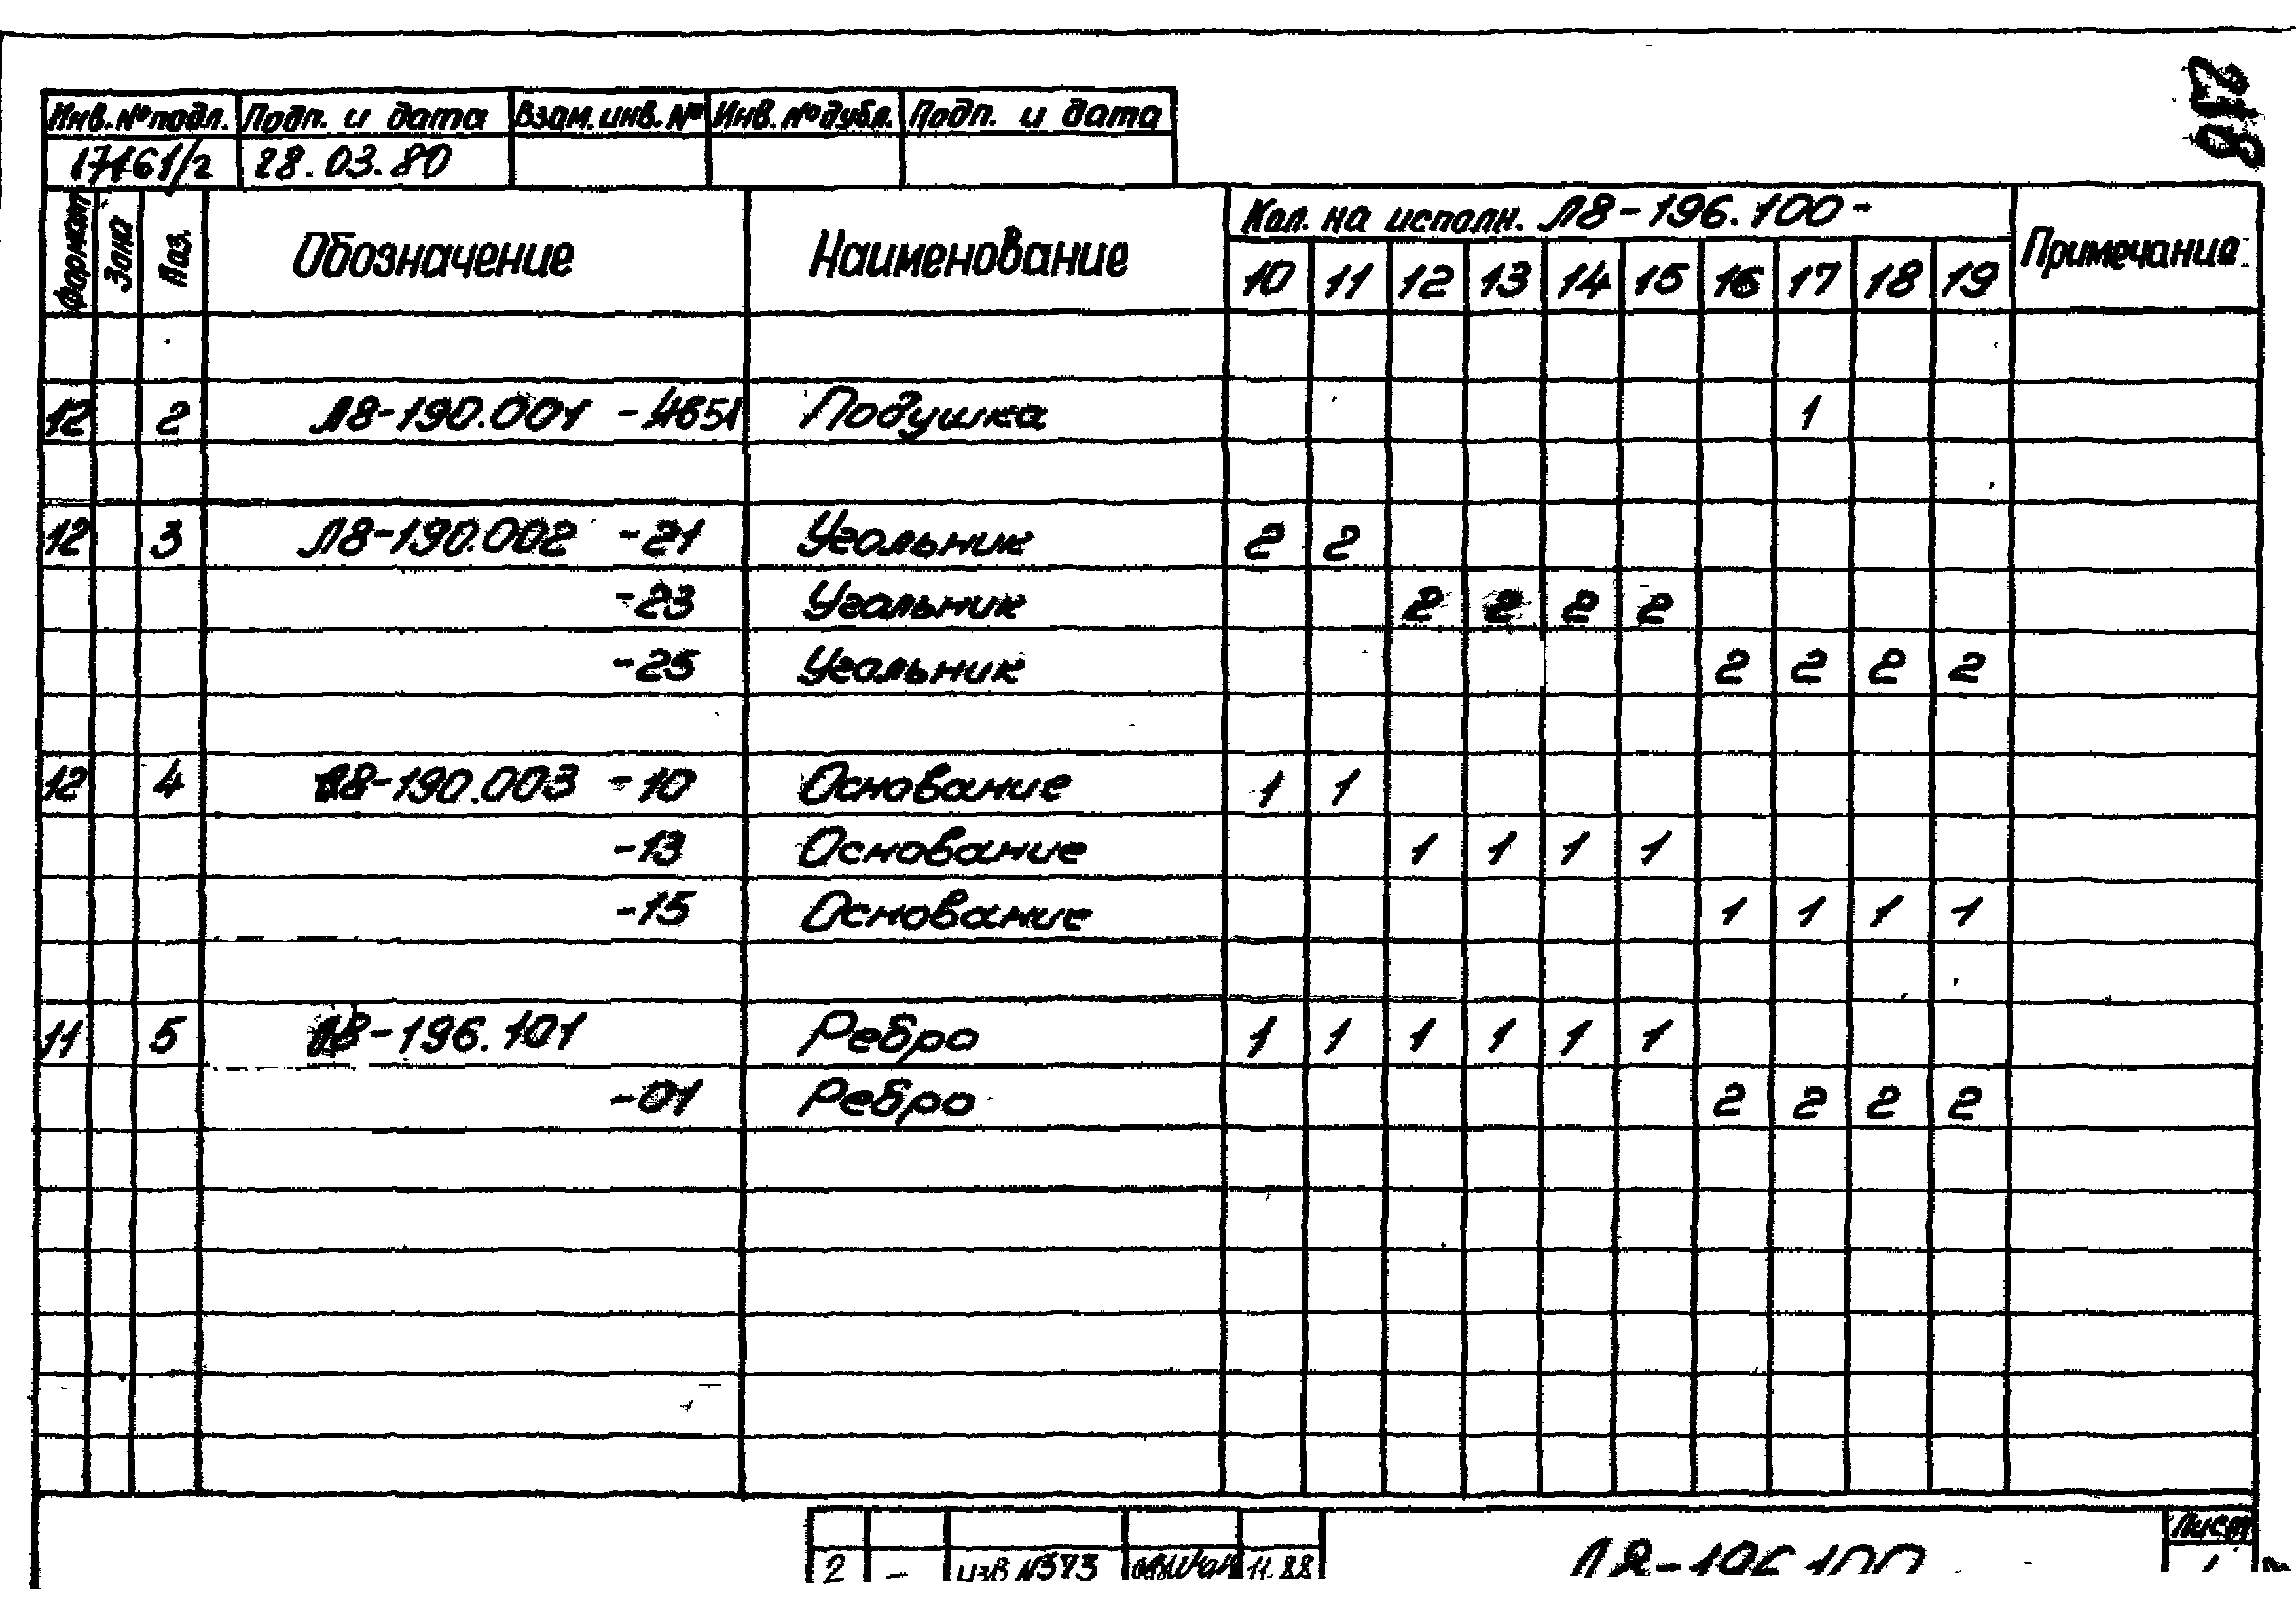 218
Инв.№подл. Подп. и дата Взам.инв.№ Инв.№дубл. Подп. и дата
17161/2 28.03.80
Формат Зона Поз. Обозначение Наименование Кол. на исполн. Л8-196.100- Примечание
10 11 12 13 14 15 16 17 18 19
12 2 Л8-190.001 -4651 Подушка 1
12 3 Л8-190.002 -21 Угольник 2 2
-23 Угольник 2 2 2 2
-25 Угольник 2 2 2 2
12 4 Л8-190.003 -10 Основание 1 1
-13 Основание 1 1 1 1
-15 Основание 1 1 1 1
11 5 Л8-196.101 Ребро 1 1 1 1 1 1
-01 Ребро 2 2 2 2
Лист
2 - изв N373 11.88 Л8-196.100